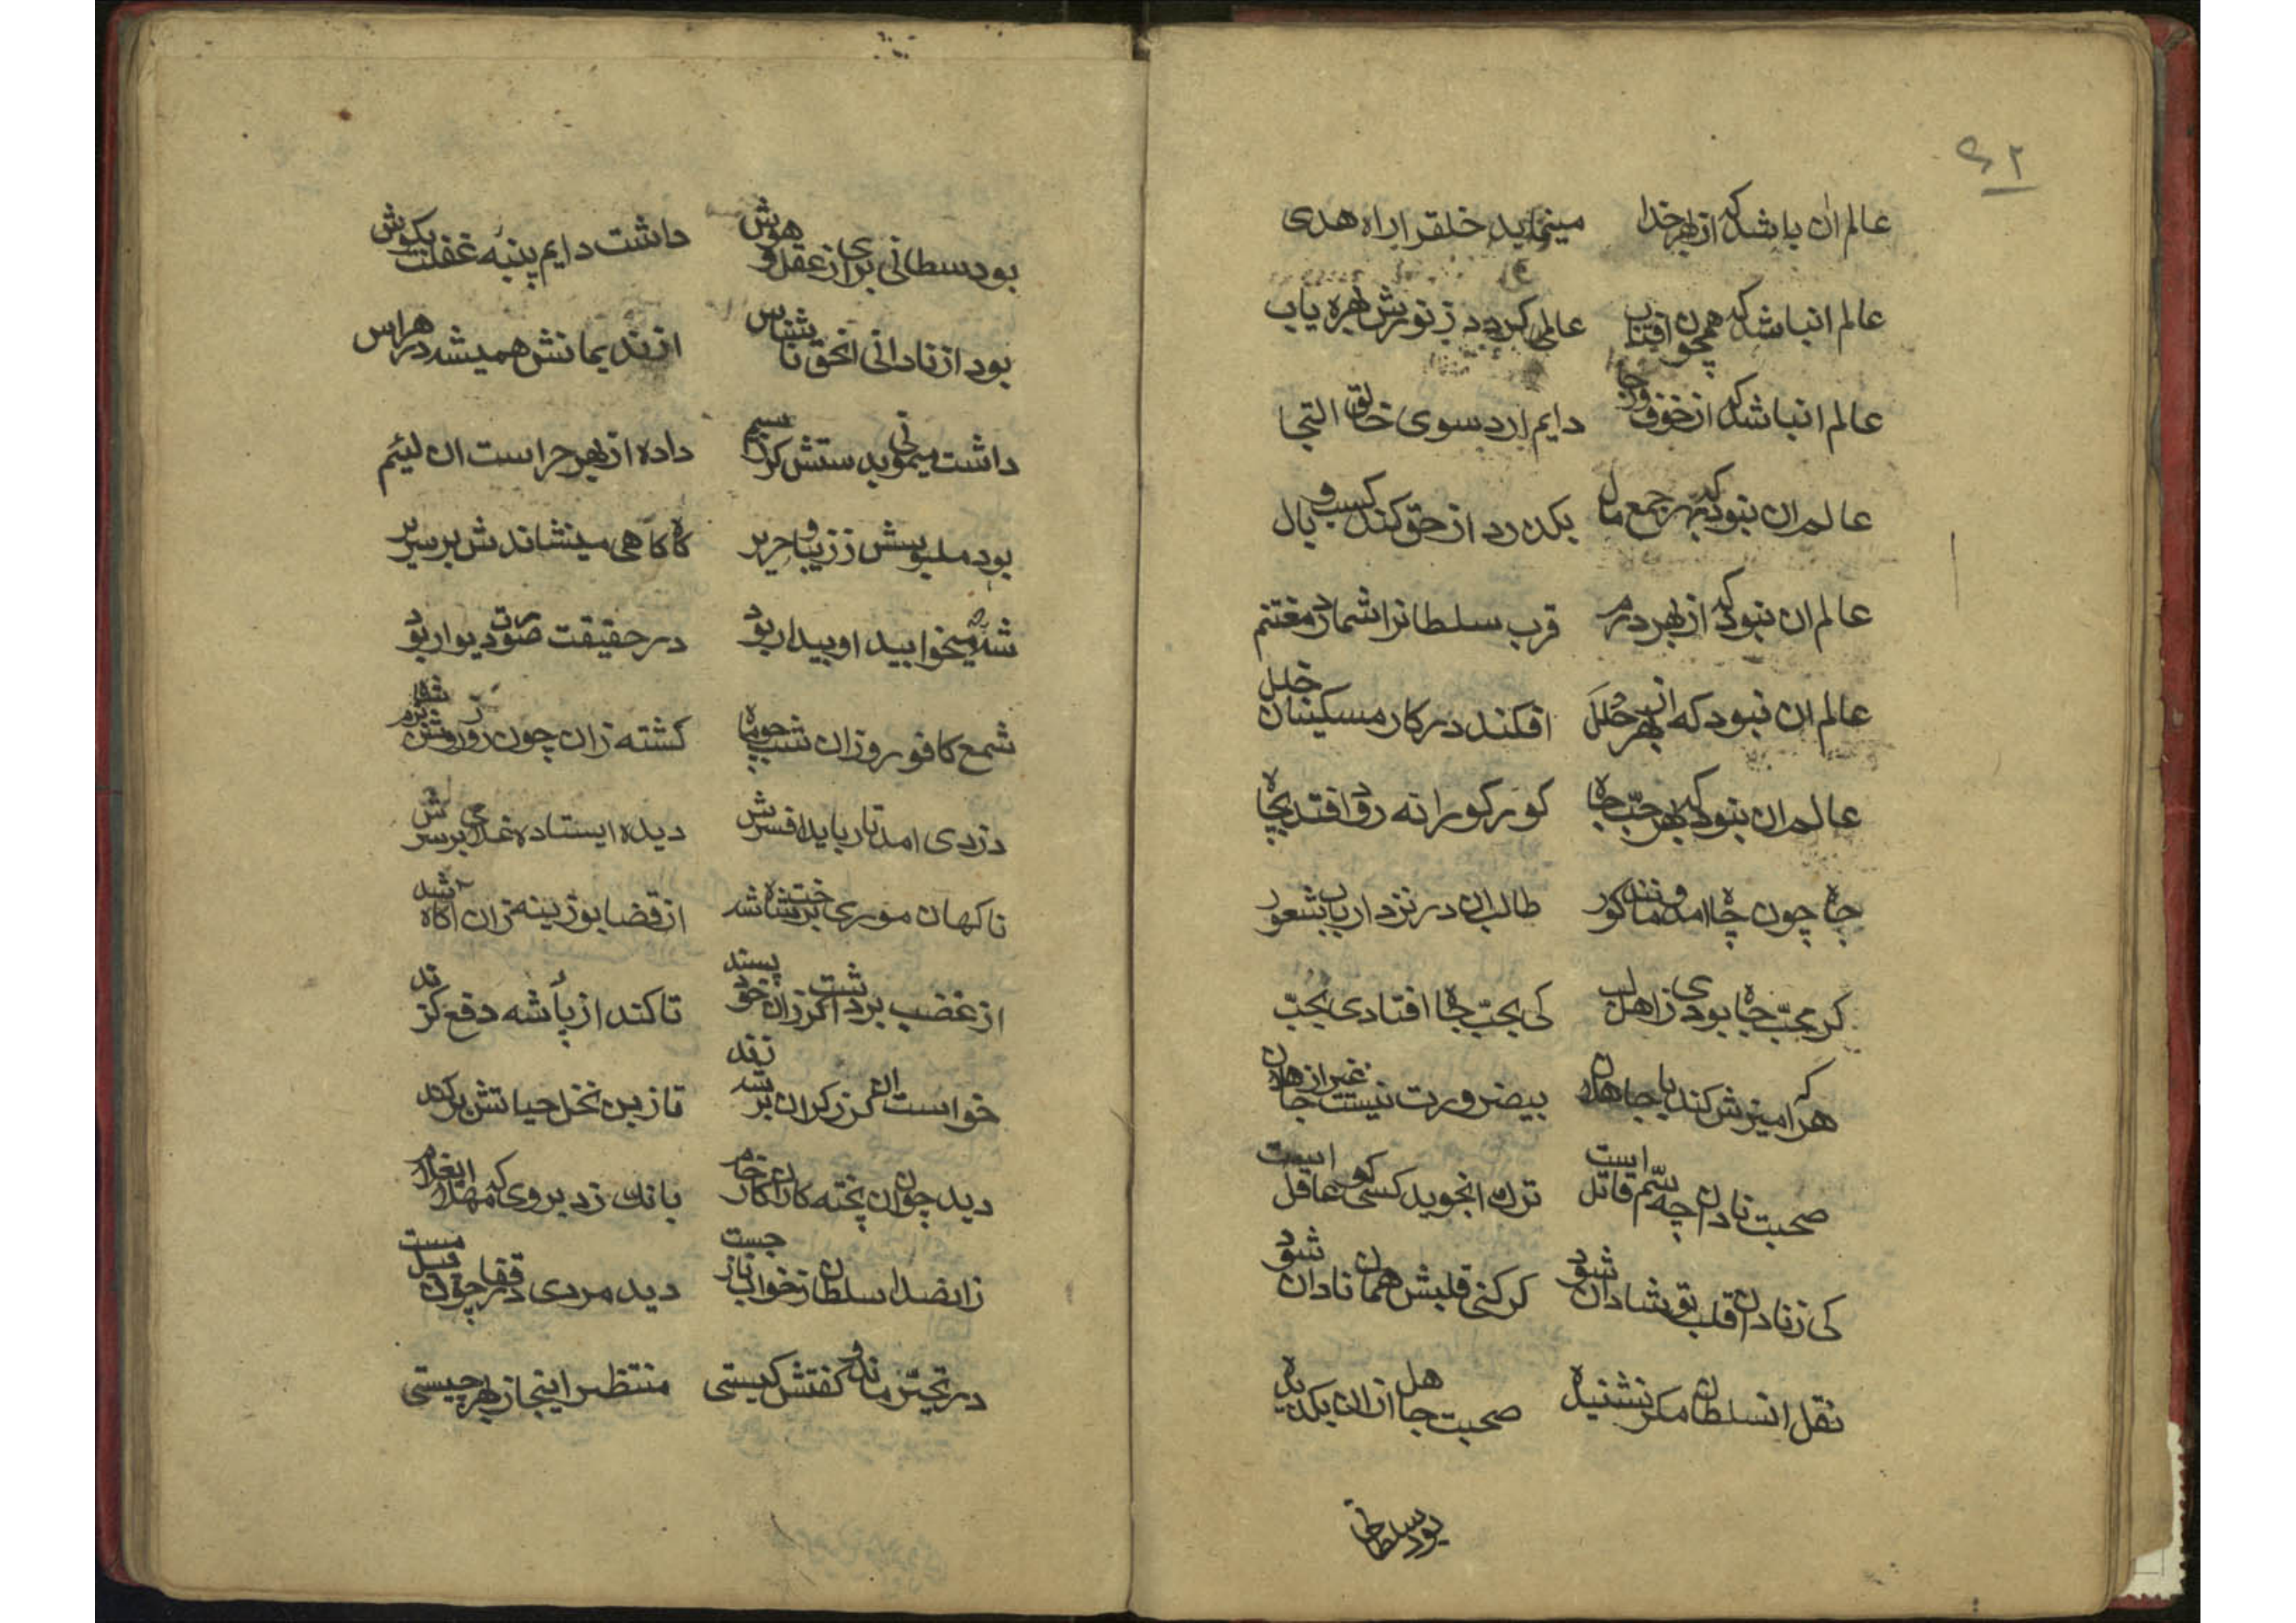 ۶۲
عالم ان باشد که از بهر خدا مینماید خلقرا راه هدی
عالم انباشد که همچون افتاب عالمی کردد ز نورش بهره یاب
عالم انباشد که از خوف و رجا دایم ارد سوی خالق التجا
عالم ان نبود که بهر جمع مال بکذرد از حق کند کسب و بال
عالم ان نبود که از بهر درم قرب سلطانرا شمارد مغتنم
عالم ان نبود که از بهر حلل افکند در کار مسکینان خلل
عالم ان نبود که بهر حبّ جاه کور کورانه رود افتد بچاه
جاه چون چاه امد و مانند کور طالب ان در نزد ارباب شعور
کر محبّ جاه بودی ز اهل لب کی بحبّ جاه افتادی بجبّ
هر که امیزش کند با جاهلان بیضرورت نیست غیر از جاهلان
صحبت نادان چه سمّ قاتل است ترك انجوید کسی کو عاقل است
کی ز نادان قلب تو شادان شود کر کنی قلبش همان نادان شود
نقل انسلطان مکر نشنیدهٔ صحبت جاهل از ان بکزیدهٔ
بود سلطانی
بود سلطانی بری از عقل و هوش داشت دایم پنبه غفلت بکوش
بود از نادانی انحق ناشناس از ندیمانش همیشه در هراس
داشت میمونی بدستش کرز سیم داده از بهر حراست ان لئیم
بود ملبوسش ز زیبا و حریر کاه کاهی مینشاندش بر سریر
شه میخوابید او بیدار بود در حقیقت صورت دیوار بود
شمع کافور و زان شب چو ماه کشته زان چون روز روشن بزم شاه
دزدی امد تا رباید افسرش دیده ایستاده غلامی بر سرش
ناکهان موری بر تخت شاه شد از قضا بوزینه زان اکاه شد
از غضب برداشت کرز ان خود پسند تا کند از پأ شه دفع کزند
خواست ان کرز کران بر شه زند تا ز بن نخل حیاتش بر کند
دید چون ان پخته کار ان کار خام بانك زد بر وی که مهلا ایغلام
زانصدا سلطان ز خواب ناز جست دید مردی در قفا چون فیل مست
در تحیّر ماند و کفتش کیستی منتظر اینجا ز بهر چیستی